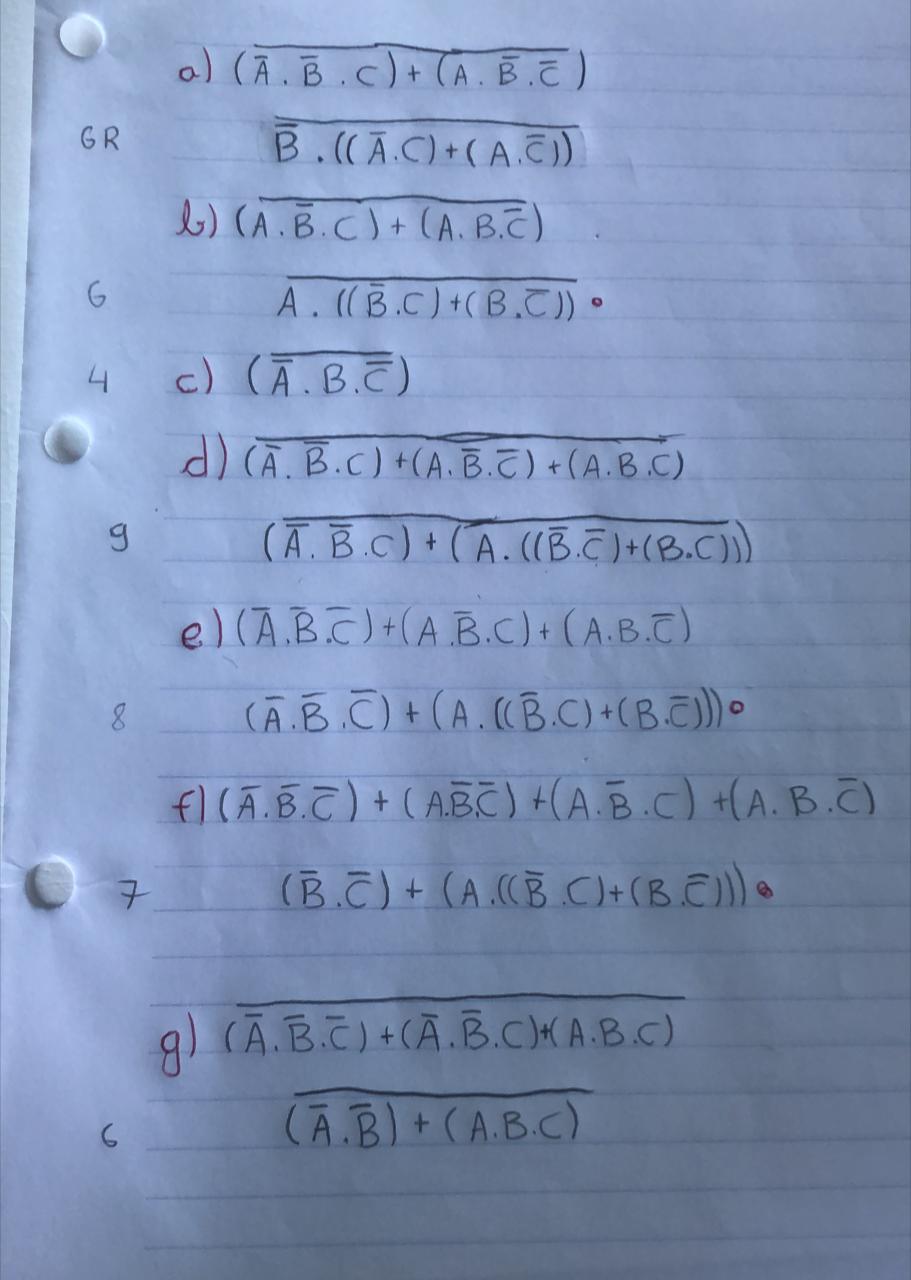 a) \overline{(\bar{A}.\bar{B}.C)+(A.\bar{B}.\bar{C})}
6R \overline{\bar{B}.((\bar{A}.C)+(A.\bar{C}))}
b) \overline{(A.\bar{B}.C)+(A.B.\bar{C})}
6 \overline{A.((\bar{B}.C)+(B.\bar{C}))}
4 c) \overline{(\bar{A}.B.\bar{C})}
d) \overline{(\bar{A}.\bar{B}.C)+(A.\bar{B}.\bar{C})+(A.B.C)}
9 \overline{(\bar{A}.\bar{B}.C)+(A.((\bar{B}.\bar{C})+(B.C)))}
e) (\bar{A}.\bar{B}.\bar{C})+(A.\bar{B}.C)+(A.B.\bar{C})
8 (\bar{A}.\bar{B}.\bar{C})+(A.((\bar{B}.C)+(B.\bar{C})))
f) (\bar{A}.\bar{B}.\bar{C})+(A.\bar{B}.\bar{C})+(A.\bar{B}.C)+(A.B.\bar{C})
7 (\bar{B}.\bar{C})+(A.((\bar{B}.C)+(B.\bar{C})))
g) \overline{(\bar{A}.\bar{B}.\bar{C})+(\bar{A}.\bar{B}.C)+(A.B.C)}
6 \overline{(\bar{A}.\bar{B})+(A.B.C)}